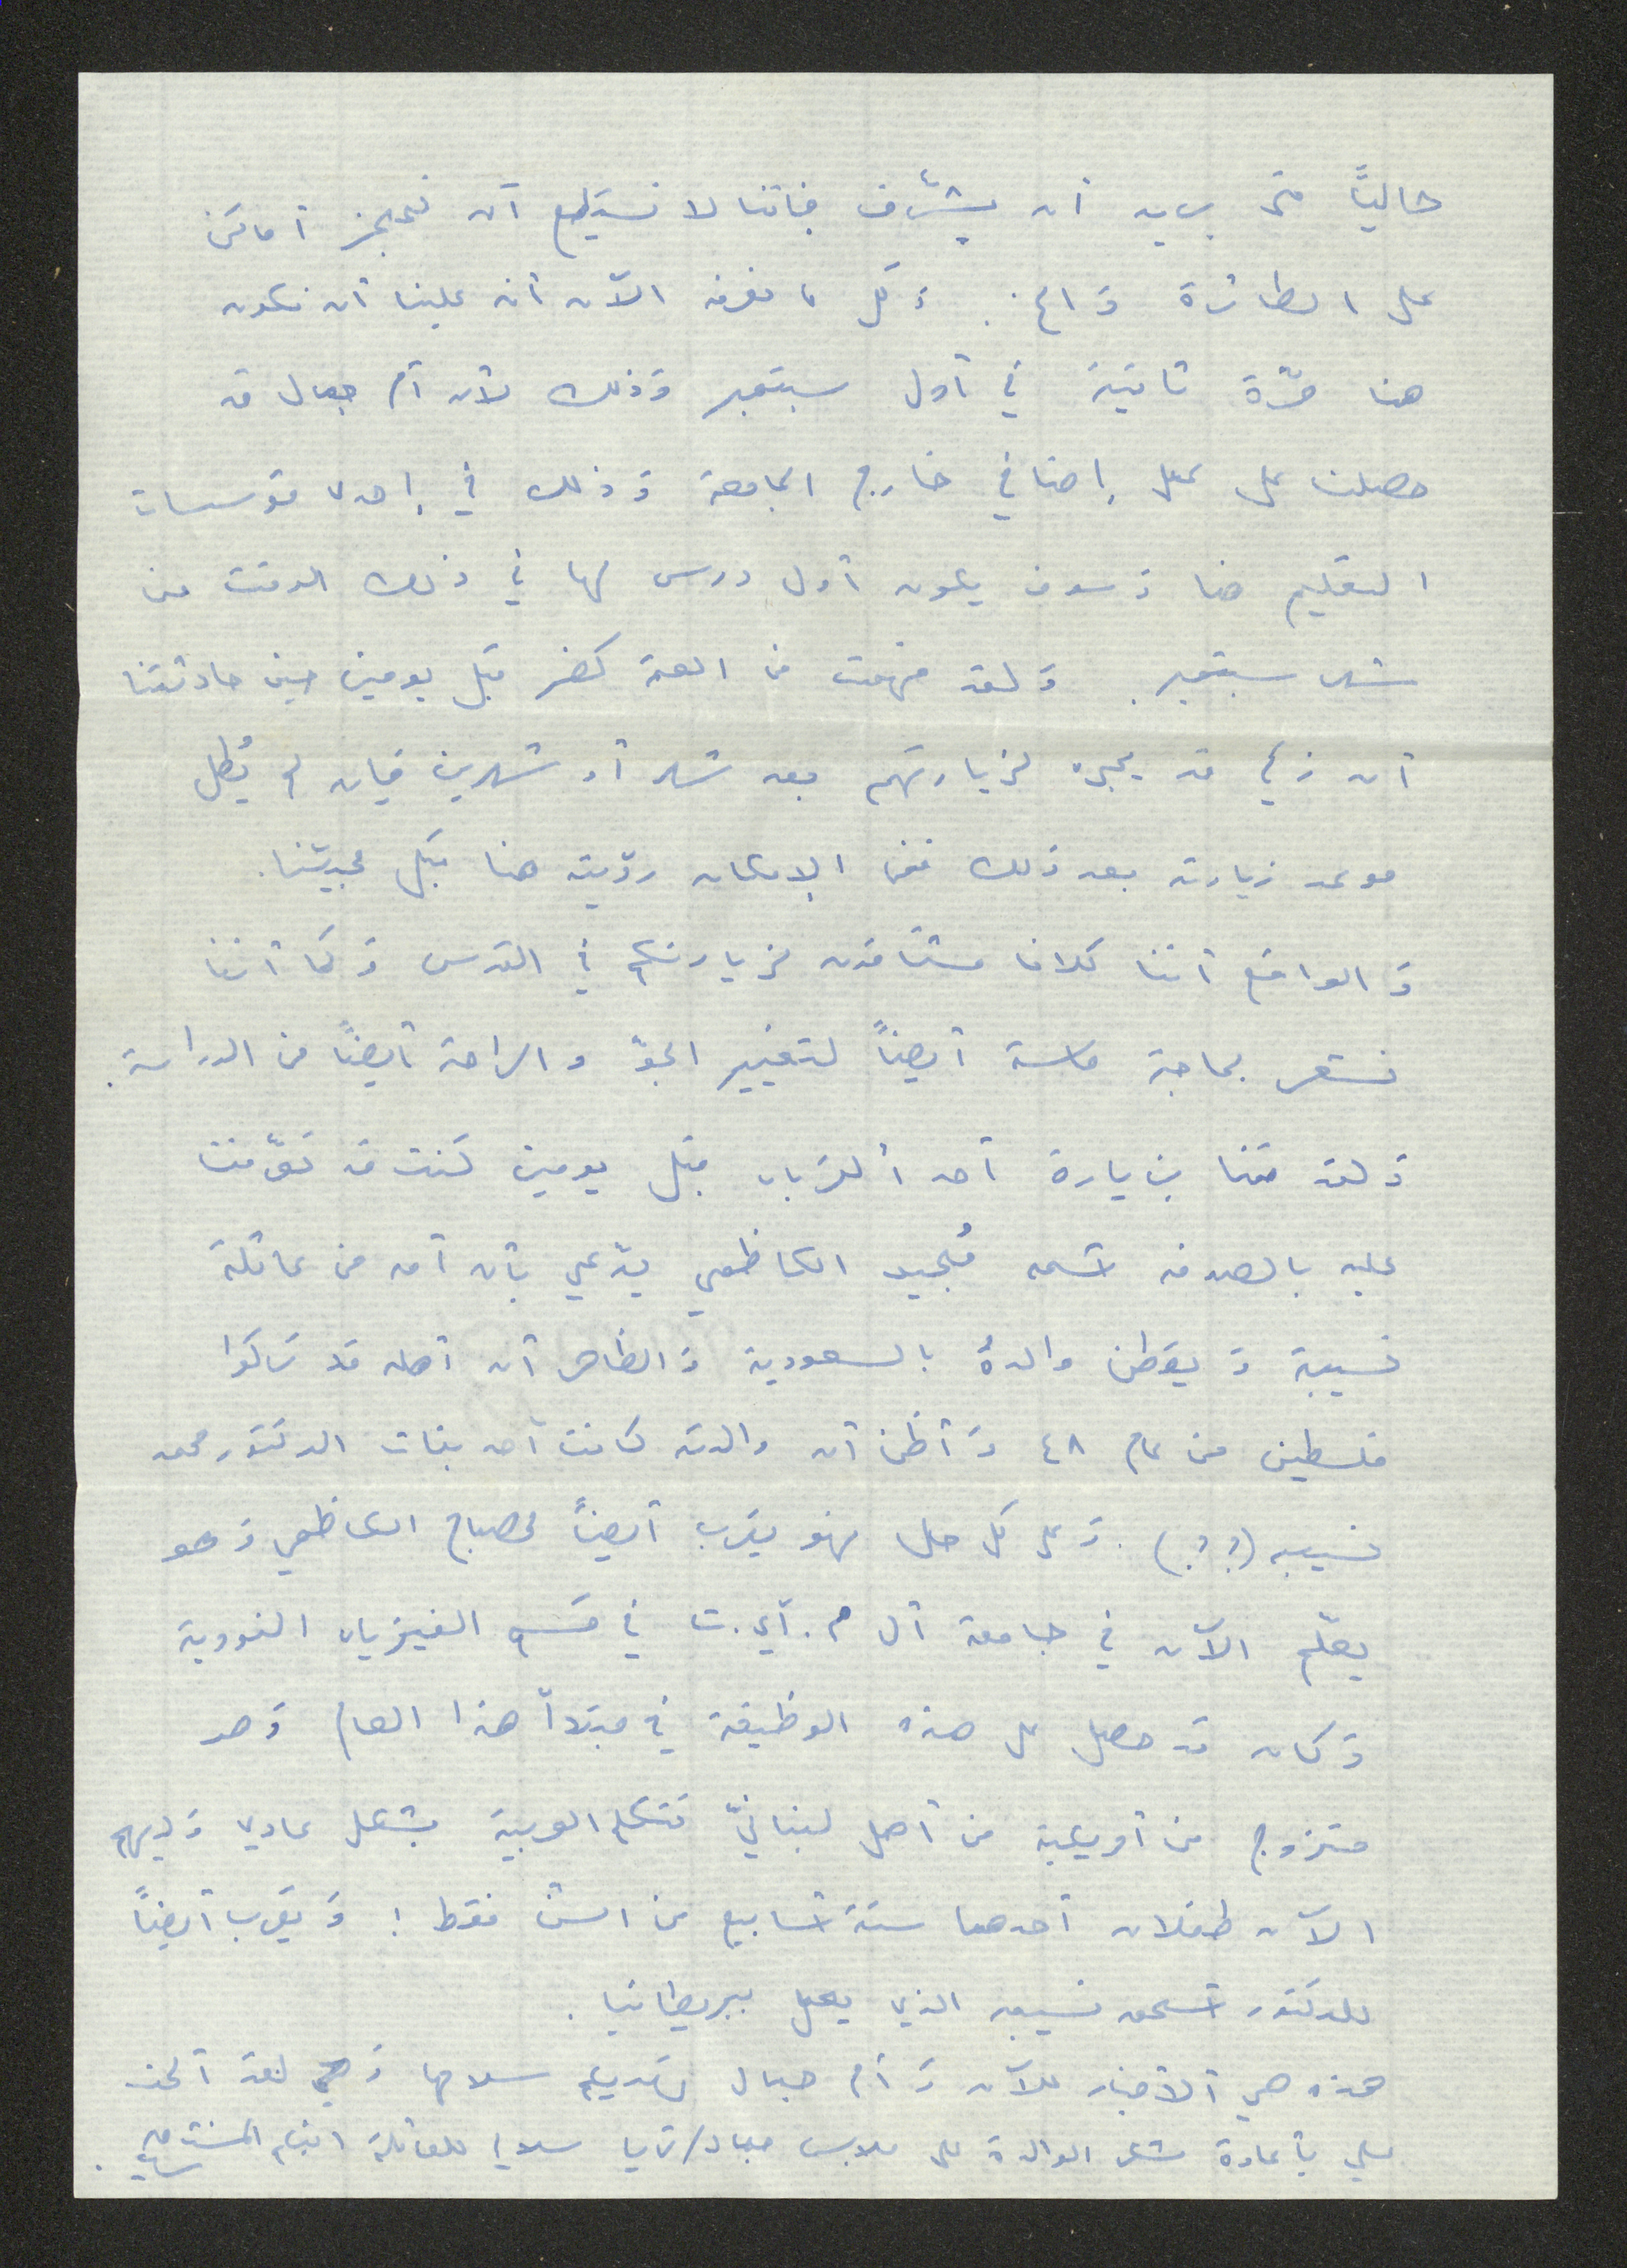 حالياً متى يريد أن يشرّف فإننا لا نستطيع أن نحجز أماكن
على الطائرة و الخ. و كل ما نعرفه الآن أنه علينا أن نكون
هنا مرّة ثانية في أول سبتمبر و ذلك لأن أم جمال قد
حصلت على عمل إضافي خارج الجامعة و ذلك في إحدى مؤسسات
التعليم هنا و سوف يكون أول درس لها في ذلك الوقت من
شهر سبتمبر. و لقد فهمت من العمة كضر قبل يومين حين حادثتنا
أن زكي قد يجيء لزيارتهم بعد شهر أو شهرين فإن لم يُطل
موعد زيارته بعد ذلك ففي الإمكان رؤيته هنا قبل مجيئنا.
و الواقع أننا كلانا مشتاقون لزيارتكم في القدس و كما أننا
نشعر بحاجة ماسة أيضاً لتغيير الجوّ و الراحة أيضاً من الدراسة.
و لقد قمنا بزيارة أحد القرباء قبل يومين كنت قد تعرّفت
عليه بالصدفه اسمه مُجيد الكاظمي يدّعي بأن أمه من عائلة
نسيبة و يقطن والدهُ بالسعودية و الظاهر أن أهله قد تركوا
فلسطين من عام ٤٨ و أظن أن والدته كانت أحد بنات الدكتور محمد
نسيبه (؟؟). و على كل حال فهو يقرب أيضاً لمصباح الكاظمي و هو
يعلّم الآن في جامعة ال م. آي. ت في قسم الفيزياء النووية
و كان قد حصل على هذه الوظيفة في مبتدأ هذا العام و هو
متزوج من أمريكية من أصل لبنانيّ تتكلم العربية بشكل عادي و لديهم
الآن طفلان أحدهما ستة أسابيع من السن فقط! و يقرب أيضاً
للدكتور اسحق نسيبه الذي يعمل ببريطانيا.
هذه هي الأخبار للآن و أم جمال تهديكم سلامها و لقد ألحت
علي بأعادة شكر الوالدة على ملابس جمال / ثانيا سلامي للعائلة ابنكم المشتاق